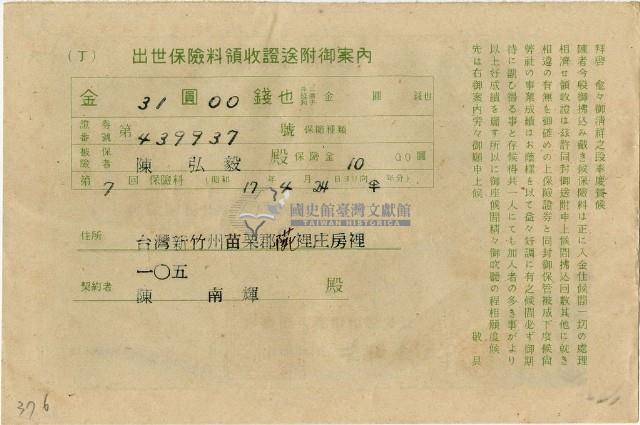 (丁) 出世保險料領收證送附御案內
金 31 圓 00 錢也 金 圓 錢也
證券番號 第 439937 號 保險種類
被保險者 陳 弘毅 殿 保險金 10 00圓
第 7 回 保險料 (昭和 17 年 4 月 24 日ヨリ向 年分)
國史館臺灣文獻館
TAIWAN HISTORICA
住所 台灣新竹州苗栗郡苑裡庄房裡
一〇五
契約者 陳 南輝 殿
拜啓 愈々御淸祥之段奉慶賀候
陳者今般御拂込み戴き候保險料は正に入金仕候間一切の處理
相濟せ領收證は玆許同封御送附申上候間拂込回數其他に就き
相違の有無を御確めの上保險證券と同封御保管被成下度候尙
弊社の事業成績はお蔭樣を以て益々好調に有之候間必ず御期
待に副ひ得る事と存候得共一人にても加入者の多き事がより
以上好成績を齎す所以に御座候間精々御吹聽の程相願度候
先は右御案內旁々御願申上候 敬具
376